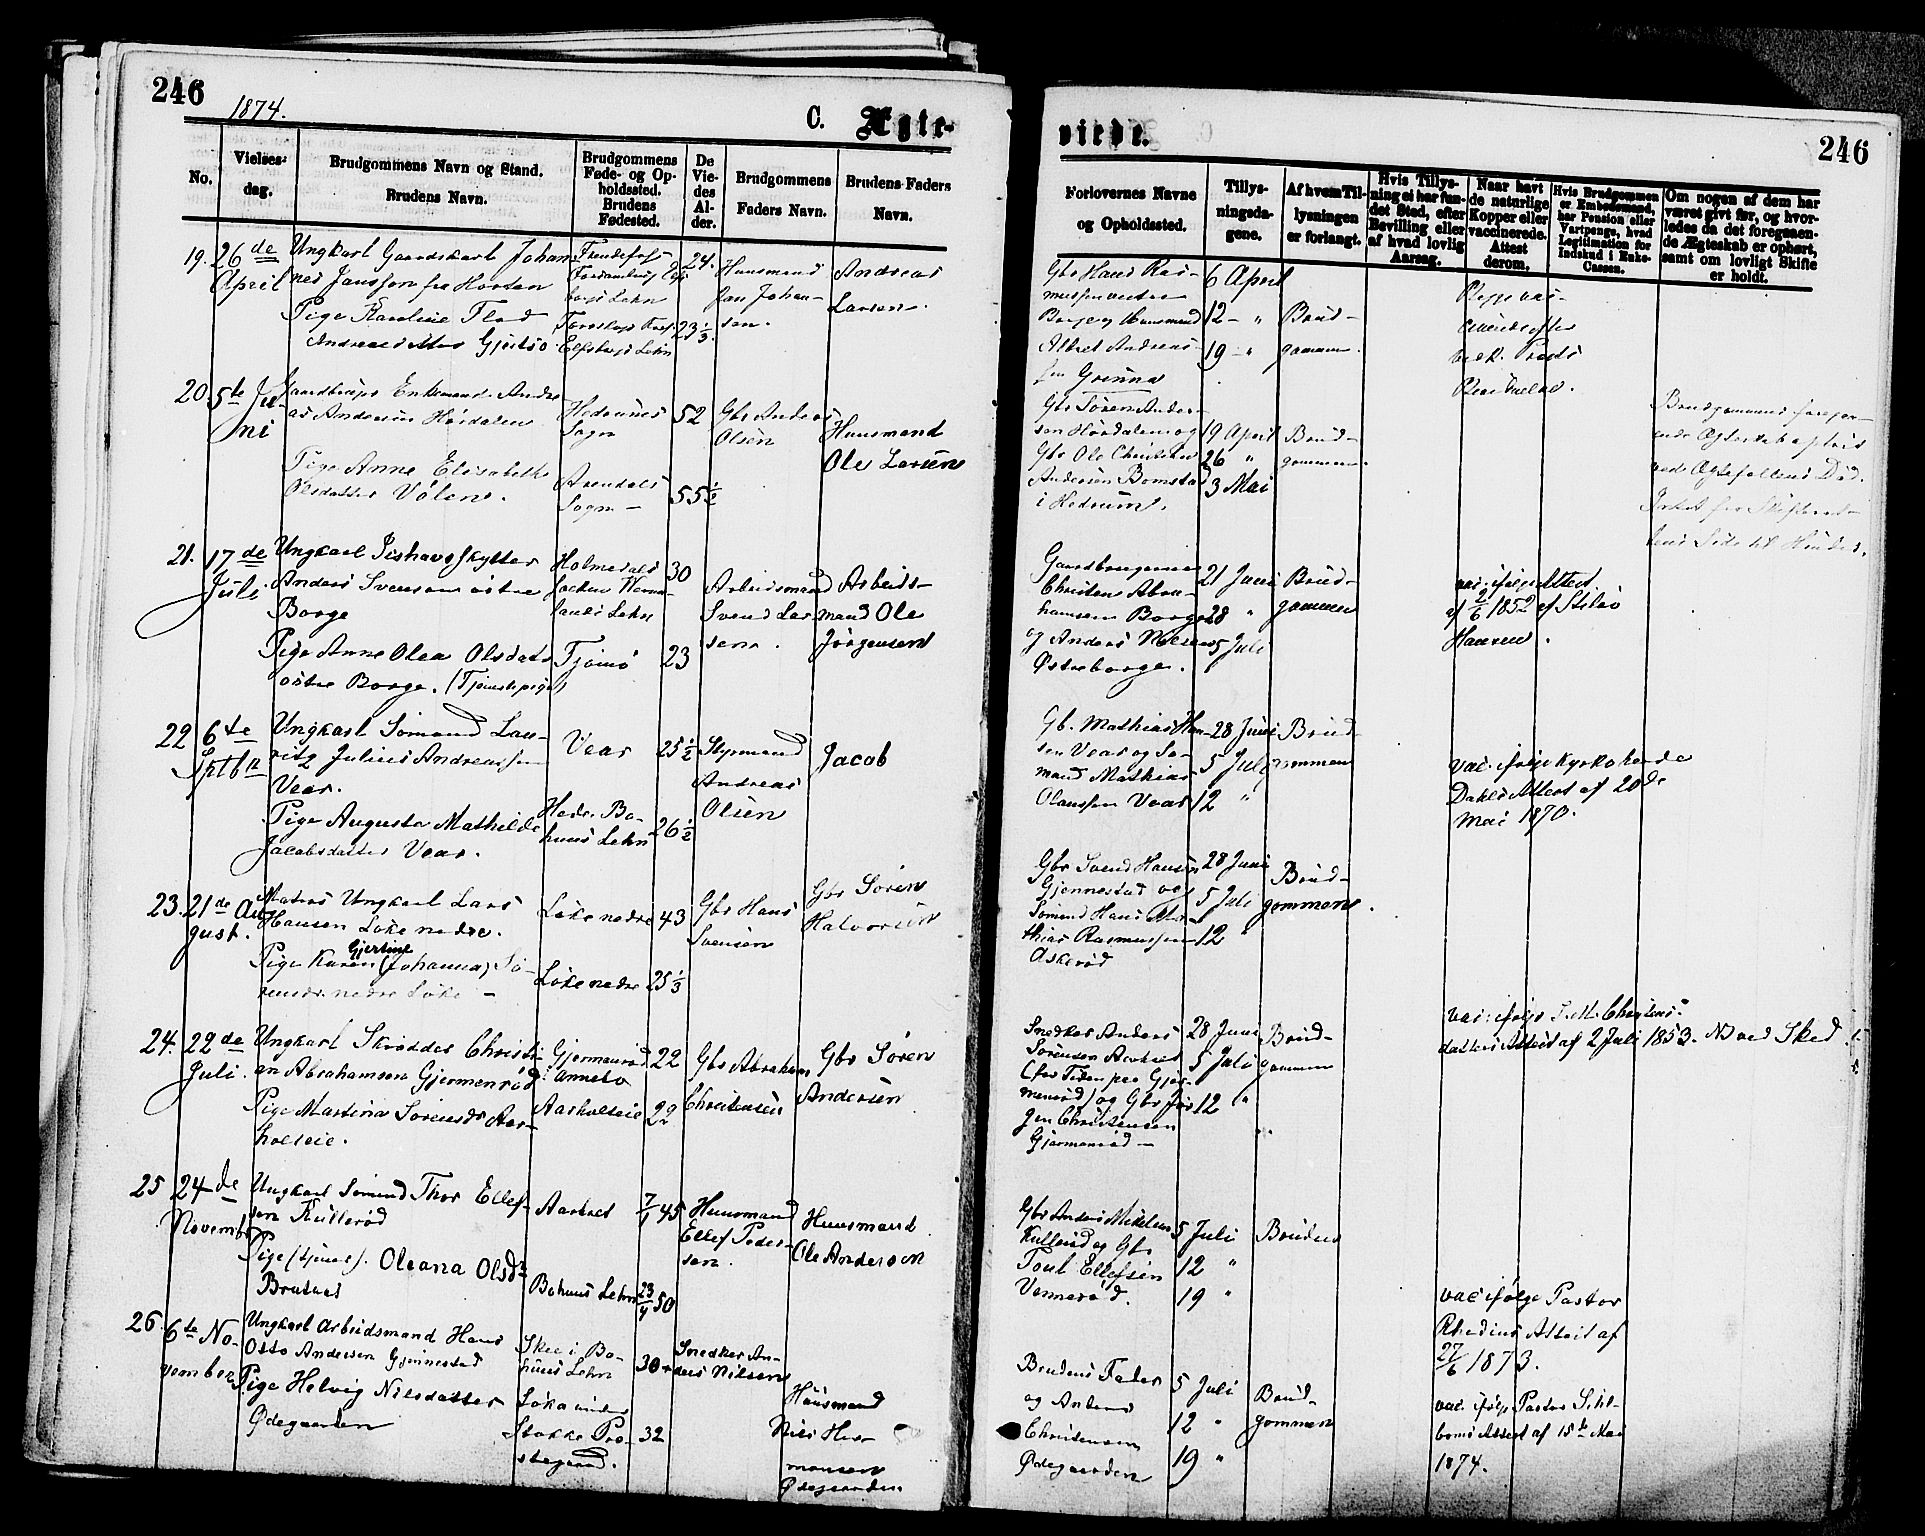 246
1874.
C. Ægte-
No.
Vielses-
dag.
Brudgommens Navn og Stand.
Brudens Navn.
Brudgommens
Føde- og Op-
holdssted.
Brudens
Fødested.
De
Vie-
des
Al-
der.
Brudgommens
Faders Navn.
Brudens Faders
Navn.
19. 26de
April
Ungkarl Gaardskarl Johan-
nes Janssen fra Horten
Pige Karoline Flod
Andreasdatter Gjertsø
24.
23 1/3
Huusmand
Jan Johan-
sen.
Andreas
Larsen.
20. 5te Ju-
ni
Gaardbruger Enkemand Andre-
as Andersen Hørdalen
Pige Anne Elisabeth
Olsdatter Vølen.
Hedrums
Sogn
Arendals
Sogn
52
55 1/2
Gbr Anders
Olsen
Huusmand
Ole Larsen
21. 17de
Juli.
Ungkarl Ishavsskytter
Anders Svensen østre
Borge
Pige Anne Olea Olsdatt.
østre Borge. (Tjenstepige)
Holmedals
Tjømø
30
23
Arbeidsmand
Svend Lar-
sen.
Arbeids-
mand Ole
Jørgensen
22 6te
Sptbr
Ungkarl Sømand Lau-
ritz Julius Andreassen
Vear.
Pige Augusta Mathilde
Jacobsdatter Vear.
Vear
Hede. Ba-
huus Lehn
25 1/2
26 1/2
Styrmand
Andreas
Olsen
Jacob
23. 21de Au-
gust.
Matros Ungkarl Lars
Hansen Løke nedre.
Gjertine
Pige Karen (Johanna) Sø-
rensdr. nedre Løke
Løke nedre
Løke nedre
43
25 1/3
Gbr Hans
Svensen
Gbr Søren
Halvorsen
24. 22de
Juli.
Ungkarl Skrædder Christi-
an Abrahamsen Gjermenrød
Pige Martina Sørensdr Aar-
holseie.
Gjermenrød
i Annebo
Aarholseie
22
22
Gbr Abraham
Christensen
Gbr Søren
Andersen
25 24de
Novembr
Ungkarl Sømand Thor Ellef-
sen Kullerød
Pige (tjener). Oleana Olsdr
Bratnes
Bahuus Lehn
45
50
Huusmand
Ellef Peder-
sen.
Huusmand
Ole Andersen
26. 6te No-
vember
Ungkarl Arbeidsmand Hans
Otto Andersen Gjennestad
Pige Helvig Nilsdatter
Ødegaarden
Skee i Ba-
huus Lehn
Løka under
Stokke Præ-
stegaard.
30
32
Snedker An-
ders Nilsen
Huusmand
Nils Her-
mansen
Ødegaarden
viede.
246
Forlovernes Navne
og Opholdssted.
Tillys-
ningsda-
gene.
Af hvem Til-
lysningen
er forlangt.
Hvis Tillys-
ning ei har fun-
det Sted, efter
Bevilling eller
af hvad lovlig
Aarsag.
Naar havt
de naturlige
Kopper eller
vaccinerede.
Attest
derom.
Hvis Brudgommen
er Embedsmand,
har Pension eller
Vartpenge, hvad
Legitimation for
Indskud i Enke-
Cassen.
Om nogen af dem har
været givt før, og hvor-
ledes da det foregaaen-
de Ægteskab er ophørt,
samt om lovligt Skifte
er holdt.
Gbr Hans Ras-
mussen
Borge og Huusmand
Albret Andreas-
sen Grenna
6 April
12 - "
19 - "
Brud-
gommen.
Gbr Søren Ander-
sen Hørdalen og
Gbr Ole Christian
Andersen Bomstad
i Hedrum.
19 April
26 "
3 Mai
Brud-
gommen.
Brudgommens foregaa-
ende Ægteskab ophævet
ved Ægtefællens Død.
Gaardbrugerne
Christen Abra-
hamsen Borge
og Anders Nilsen
Østreborge.
21 Juni
28 "
5 Juli
Brud-
gommen
vac. ifølge Attest
af 2/6 1852 af
Hansen.
Gb. Mathias Han-
sen Vear og Sø-
mand Mathias
Olaussen Vear
28 Juni
5 Juli
12 "
Brud-
gommen
vac. ifølge Kyrkoherde
Dahls Attest af 20de
Mai 1870.
Gbr Svend Hansen
Gjennestad og
Sømand Hans Ma-
thias Rasmussen
Askerød
28 Juni
5 Juli
12 "
Brud-
gommen.
Snedker Anders
Sørensen
(for Tiden paa Gjer-
menrød) og Gbr Jør-
gen Christensen
Gjermenrød
28 Juni
5 Juli
12 "
Brud-
gommen
vac. ifølge Christens-
datters Attest af 2 Juli 1853.
Gbr Anders Mikelsen
Kullerød og Gbr
Poul Ellefsen
Vennerød.
5 Juli
12 "
19 "
Bruden
vac ifølge Pastor
Rhedins Attest af
27/6 1873.
Brudens Fader
og Anders
Christensen
Ødegaarden
5 Juli
12 "
19 "
Brud-
gommen
vac. ifølge Pastor
Attest af 15de Mai
1874.